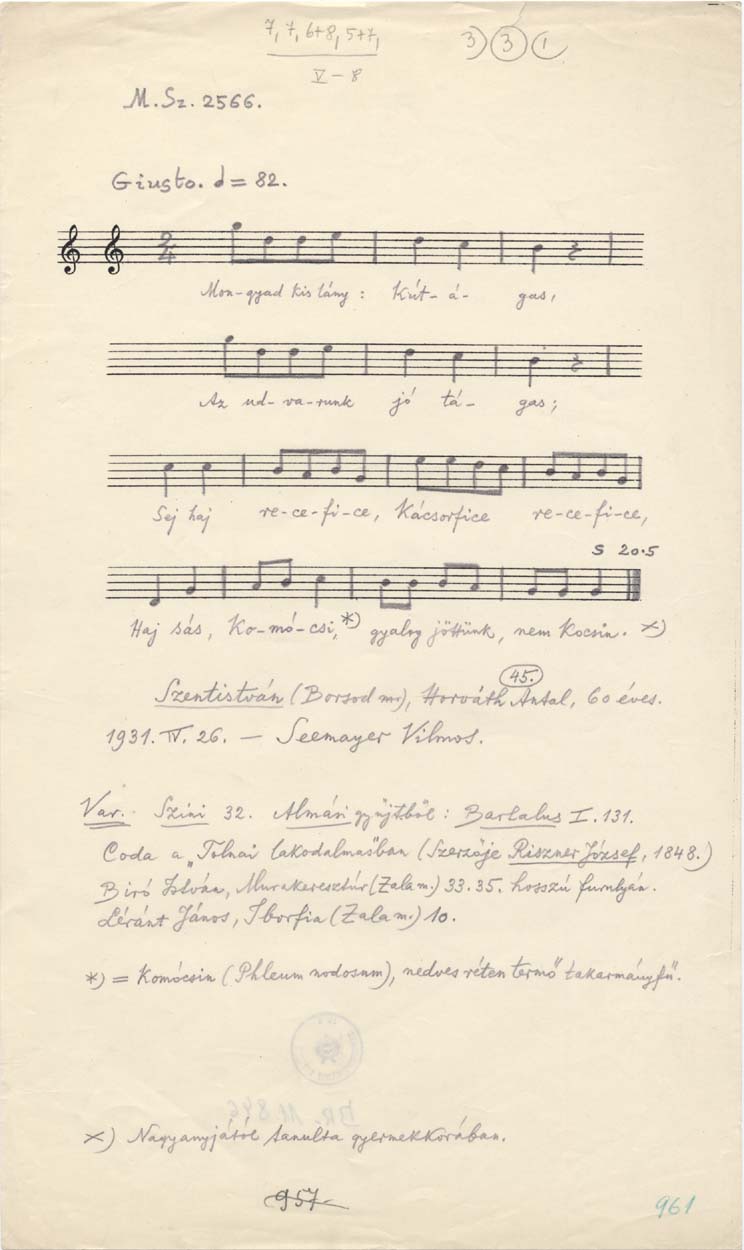 7, 7, 6+8, 5+7,
3) 3 1
V – 8
M. Sz. 2566.
Giusto. = 82.
2/4
Mon-gyad kis lány: Kút-á- gas,
Az ud-va-runk jó tá- gas;
Sej haj re-ce-fi-ce, Kácsorfice re-ce-fi-ce,
S 20.5
Haj sás, Ko-mó-csi, *) gyalog jöttünk, nem kocsin. ×)
45.
Szentistván (Borsod m.), Horváth Antal, 60 éves.
1931. IV. 26. — Seemayer Vilmos.
Var. Szini 32. Almási gyűjtből: Bartalus I. 131.
Coda a „Tolnai lakodalmas"ban (Szerzője Riszner József, 1848.)
Biró István, Murakeresztúr (Zala m.) 33.35. hosszú furulyán.
Léránt János, Iborfia (Zala m.) 10.
*) = Komócsin (Phleum nodosum), nedves réten termő takarmányfű.
BR. 11846
×) Nagyanyjától tanulta gyermekkorában.
957
961